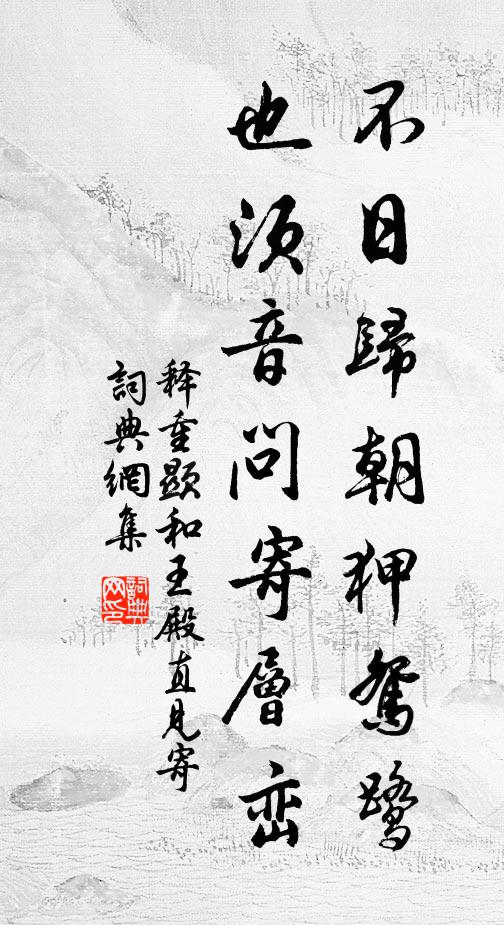 不日歸朝狎鴛鷺
也須音問寄層峦
释重顯和王殿直見寄
詞典網集